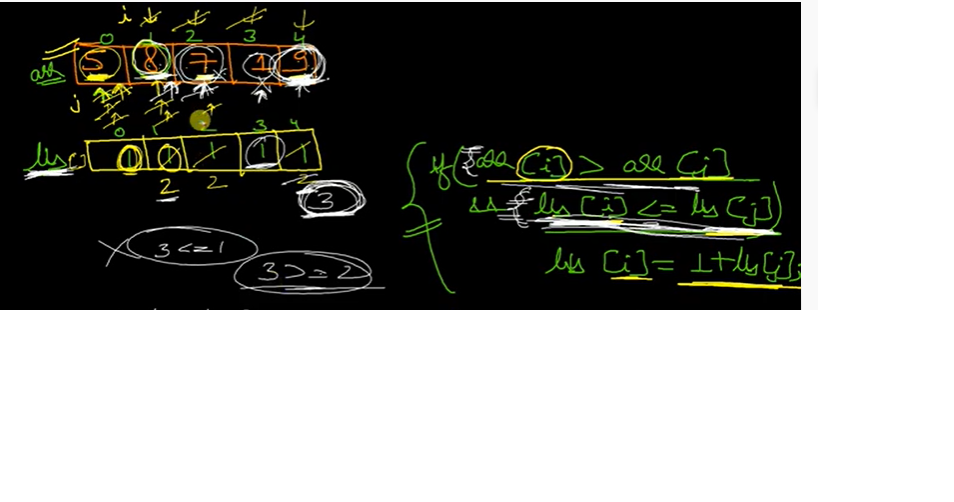 i
0 1 2 3 4
arr 5 8 7 1 9
j
0 1 2 3 4
lis[] 1 1 1 1 1
2 2 2
3
if( arr [i] > arr [j]
&& lis [i] <= lis [j])
lis [i] = 1+lis[j];
3 <= 1
3 >= 2